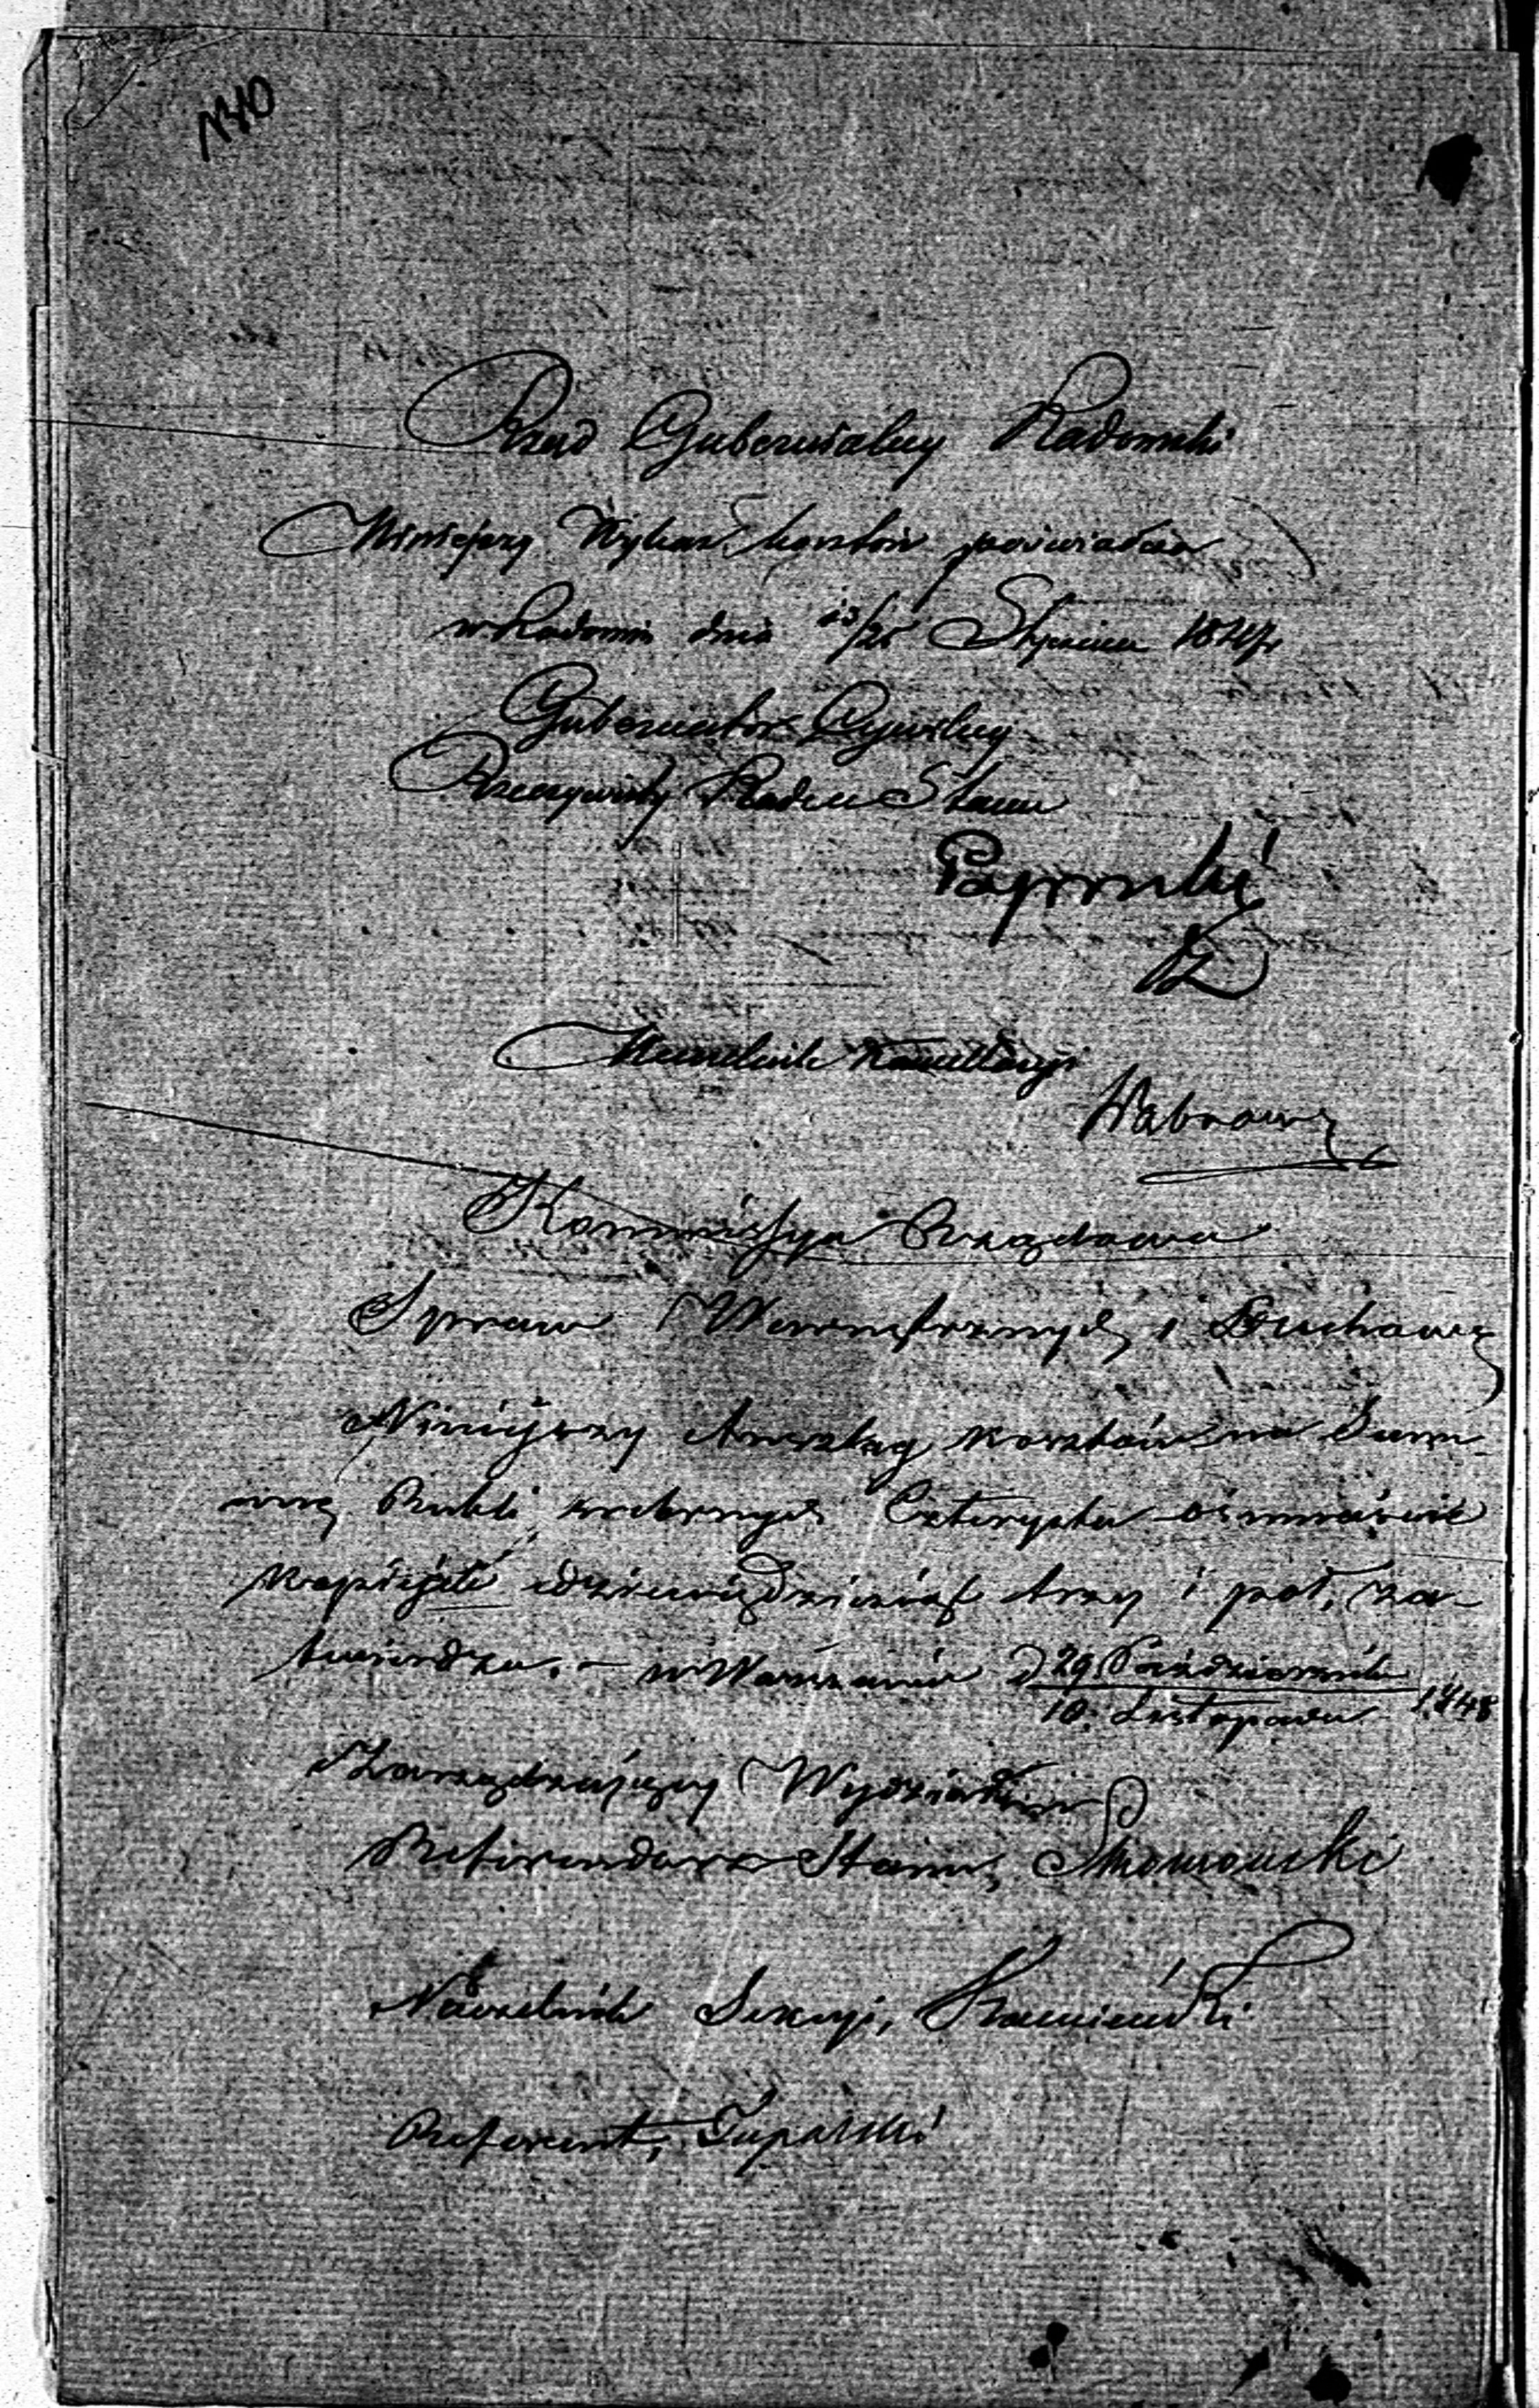 Rząd Gubernialny Radomski
Niniejszy Wykaz kosztów poświadcza
w Radomiu dnia 13/25 Stycznia 1847 r
Gubernator Cywilny
Rzeczywisty Radca Stanu
Naczelnik Kancellaryi
Kommissya Rządowa
Spraw Wewnętrznych i Duchown
Niniejszy Anszlag kosztów na Sum-
mę Rubli srebrnych Czterysta ośmnaście
kopiejek dziewięćdziesiąt trzy i pół, za-
twierdza. – w Warszawie d 29 Październik
10. Listopada 1848
Zarządzający Wydziałem
Referendarz Stanu,
Naczelnik Sekcyi, Kamieński
Referent,